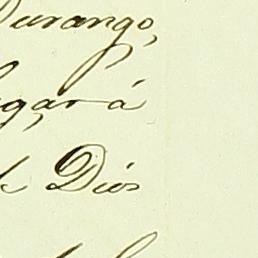 Durango,
gará
Dios